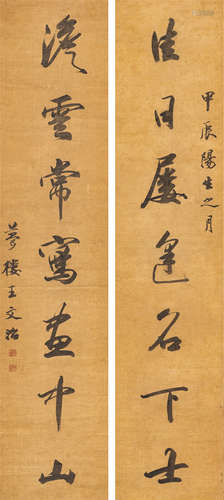 甲辰陽生之月
佳日屡逢名下士
澹雲常寫畫中山
夢樓王文治